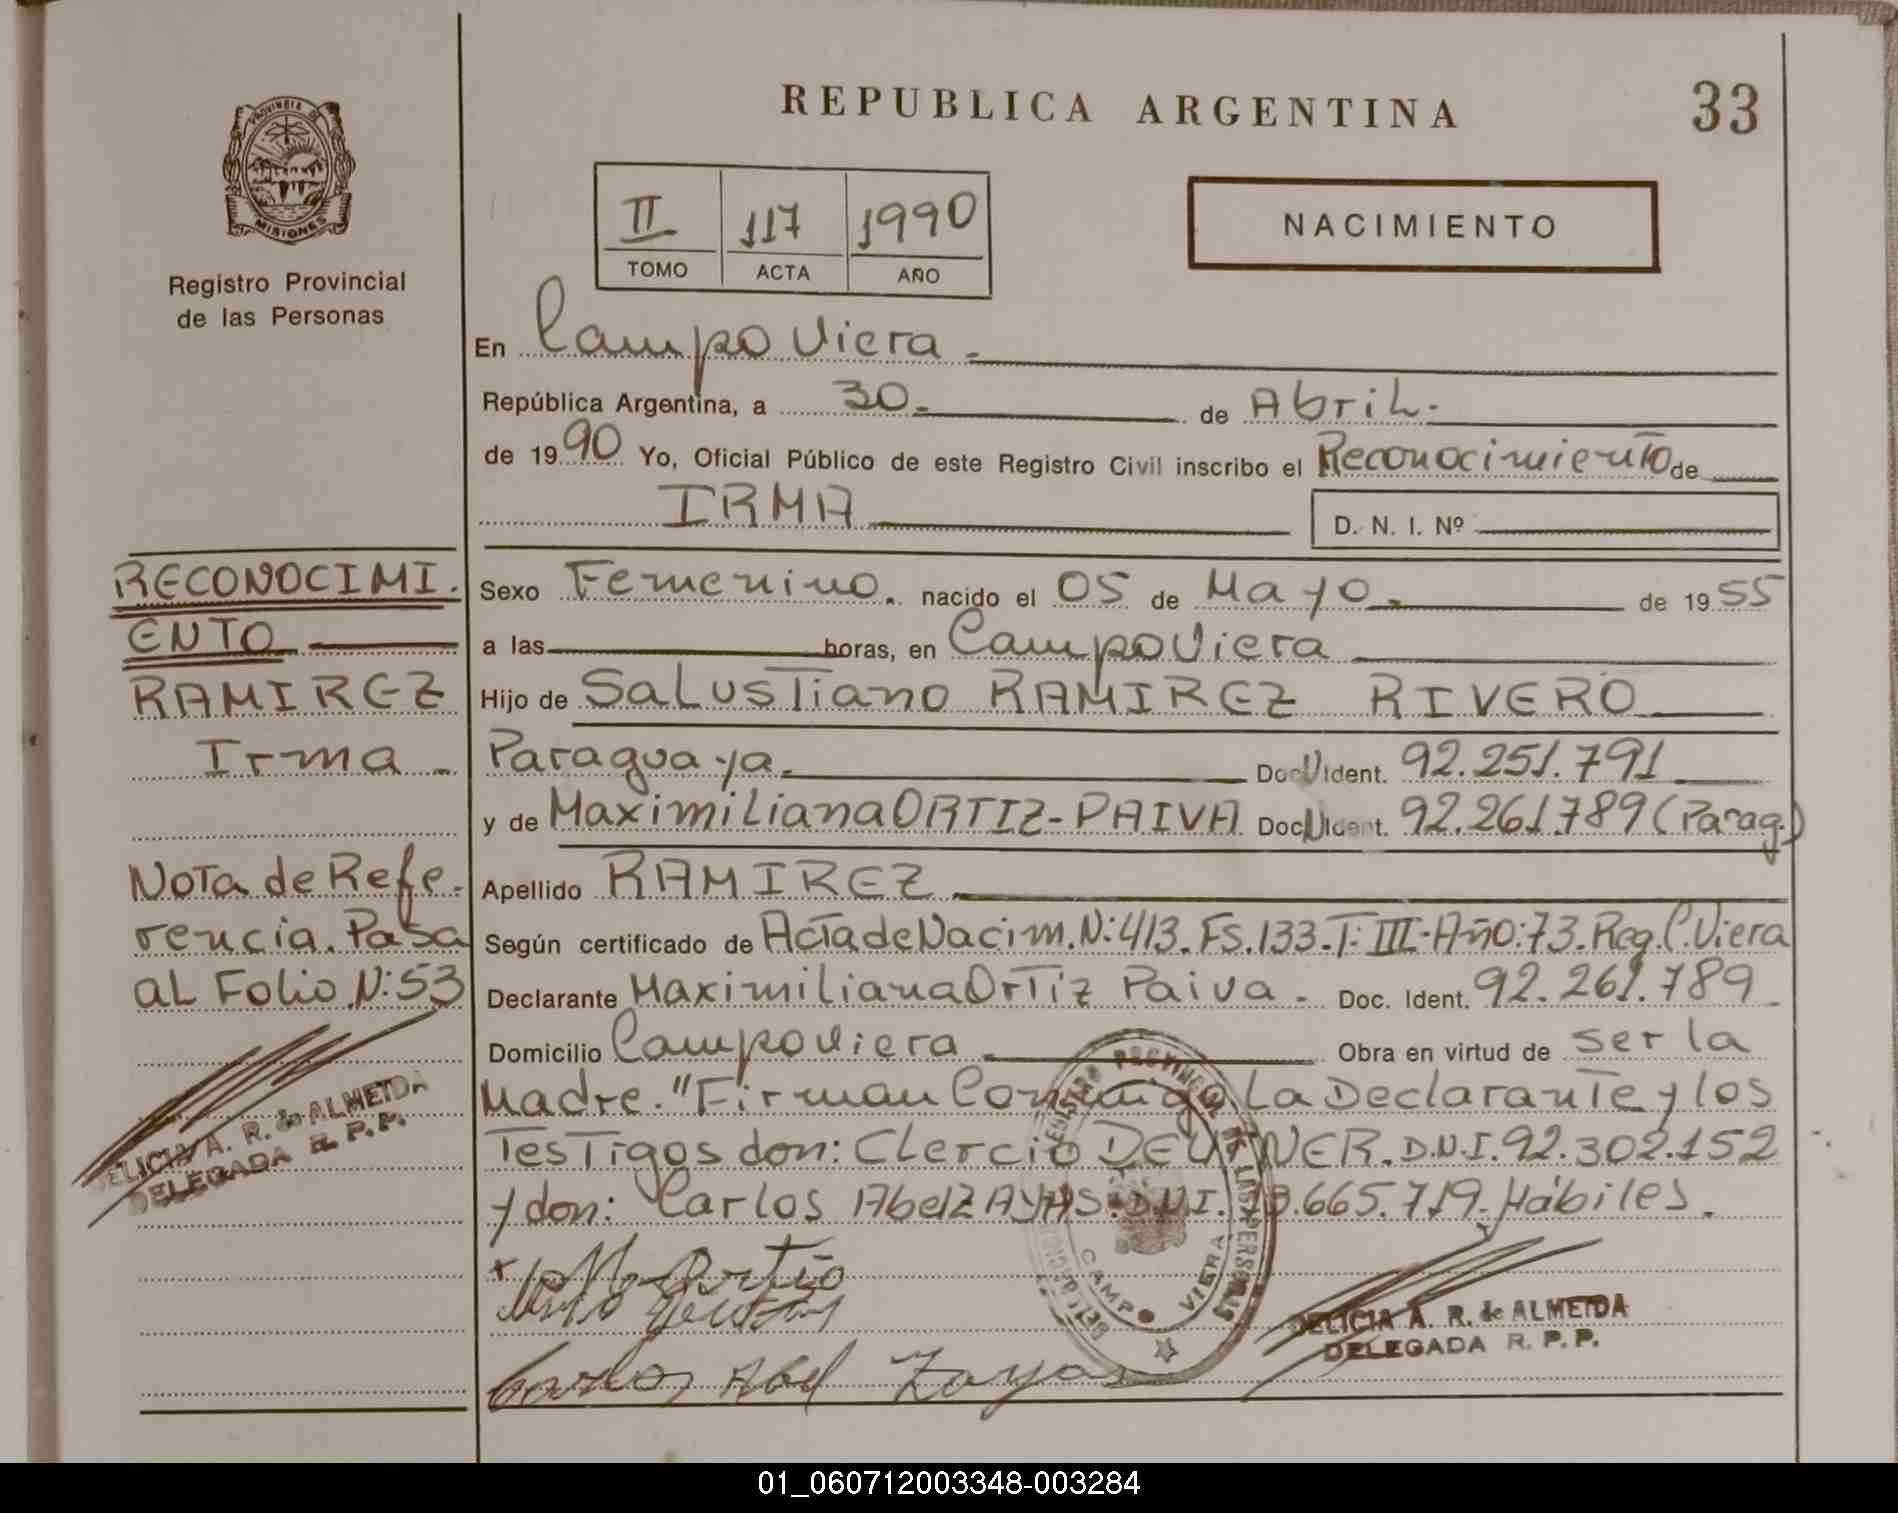 REPUBLICA ARGENTINA
33
PROVINCIA DE
MISIONES
Registro Provincial
de las Personas
II 117 1990
TOMO ACTA AÑO
NACIMIENTO
En Campo Viera.
República Argentina, a 30. de Abril.
de 1990 Yo, Oficial Público de este Registro Civil inscribo el Reconocimiento de
IRMA D. N. I. Nº
RECONOCIMI.
ENTO
RAMIREZ
Irma
Nota de Refe.
rencia. Pasa
al Folio N: 53
DELICIA A. R. de ALMEIDA
DELEGADA R. P. P.
Sexo Femenino. nacido el 05 de Mayo. de 1955
a las horas, en Campo Viera
Hijo de Salustiano RAMIREZ RIVERO
Paraguaya. Doc. Ident. 92.251.791
y de Maximiliana ORTIZ-PAIVA Doc. Ident. 92.261.789 (Parag.)
Apellido RAMIREZ
Según certificado de Acta de Nacim. N: 413. Fs. 133. T: III. Año: 73. Reg. C. Viera
Declarante Maximiliana Ortiz Paiva. Doc. Ident. 92.261.789
Domicilio Campo Viera Obra en virtud de ser la
Madre. "Firman Conmigo La Declarante y los
Testigos don: Clercio DEUTNER. D.N.I. 92.302.152
y don: Carlos Abel ZAYAS. D.N.I. 13.665.719. Hábiles.
Carlos Abel Zayas
REGISTRO PROVINCIAL DE LAS PERSONAS
CAMPO VIERA
DELICIA A. R. de ALMEIDA
DELEGADA R. P. P.
01_060712003348-003284